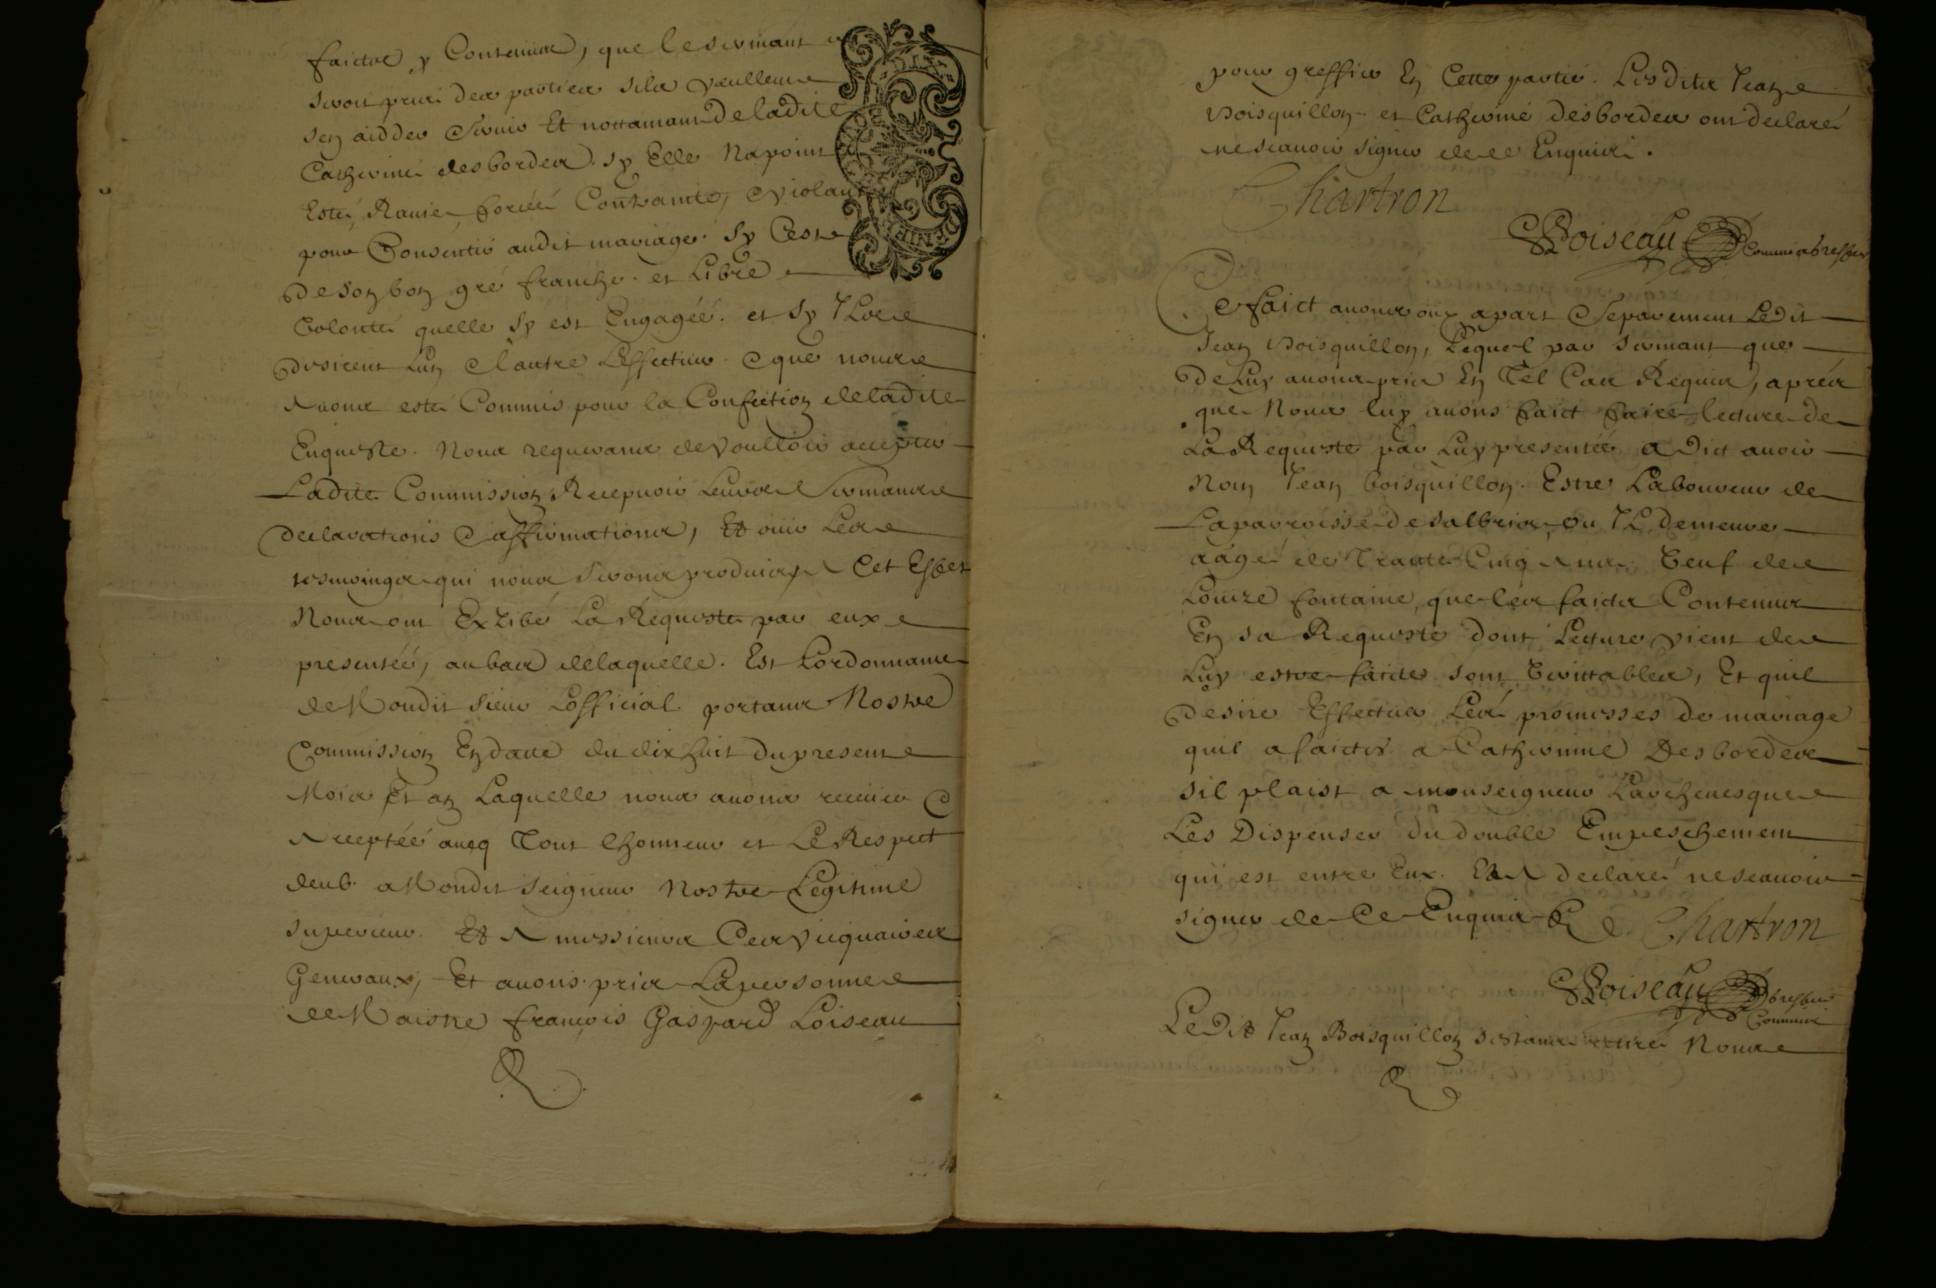 faictes y Contenues, que le sermant en
seront pris des parties sils veullent
sen aidder & servir Et nottamant de ladite
Catherine desbordes. sy Elle Na point
Esté Ravie forcéé Contrainte, & violante
pour Consentir audit mariage. Sy Cest
De son bon gré franche. et Libre
volonté quelle sy est Engagéé. et sy Ils
desirent Lun & lautre Leffectuer. & que nous
Avons esté Commis pour la Confection de ladite
Enqueste. Nous requerans de voulloir accepter
Ladite Commission Recepvoir Leurs Sermans
declarations & affirmations, Et ouir Les
tesmoings qui nous seront produits A Cet Effet
Nous ont Exhibé La Requeste par eux
presentéé, au bas de laquelle. Est Lordonnance
de Mondit sieur Lofficial. portant Nostre
Commission En datte du dix huit du present
Mois Et an Laquelle nous avons receue &
Acceptéé avecq Tout lhonneur et Le Respect
deub a Mondit seigneur Nostre Legitime
superieur. Et A messieurs Ces vicquaires
Generaux, Et avons pris La personne
de Maistre françois Gaspard Loiseau
DIX
DENIERS
pour greffier En Cette partie. Lesdits Jean
Boisquillon et Catherine desbordes ont declaré
ne scavoir signer de ce Enquis.
Chartron
Loiseau Commis Greffier
Ce faict avons ouy apart & separement Ledit
Jean Boisquillon, Lequel par sermant que
De Luy avons pris En Tel Cas Requis, aprés
que Nous luy avons faict faire lecture de
La Requeste par Luy presentéé a Dict avoir
Nom Jean boisquillon. Estre Laboureur de
La parroisse de salbris ou Il demeure
aagé de Trante Cinq Ans Veuf de
Louize fontaine, que les faicts Contenus
En sa Requeste dont Lecture vient de
Luy estre faicte sont veritables, Et quil
desire Effectuer Les promesses de mariage
quil a faictes a Catherinne Desbordes
sil plaist a monseigneur Larchevesque
Les Dispenser du double Empeschement
qui est entre Eux. Et A declaré ne scavoir
signer de Ce Enquis Chartron
Loiseau Greffier
Commis
Ledit Jean Boisquillon sestant retiré Nous